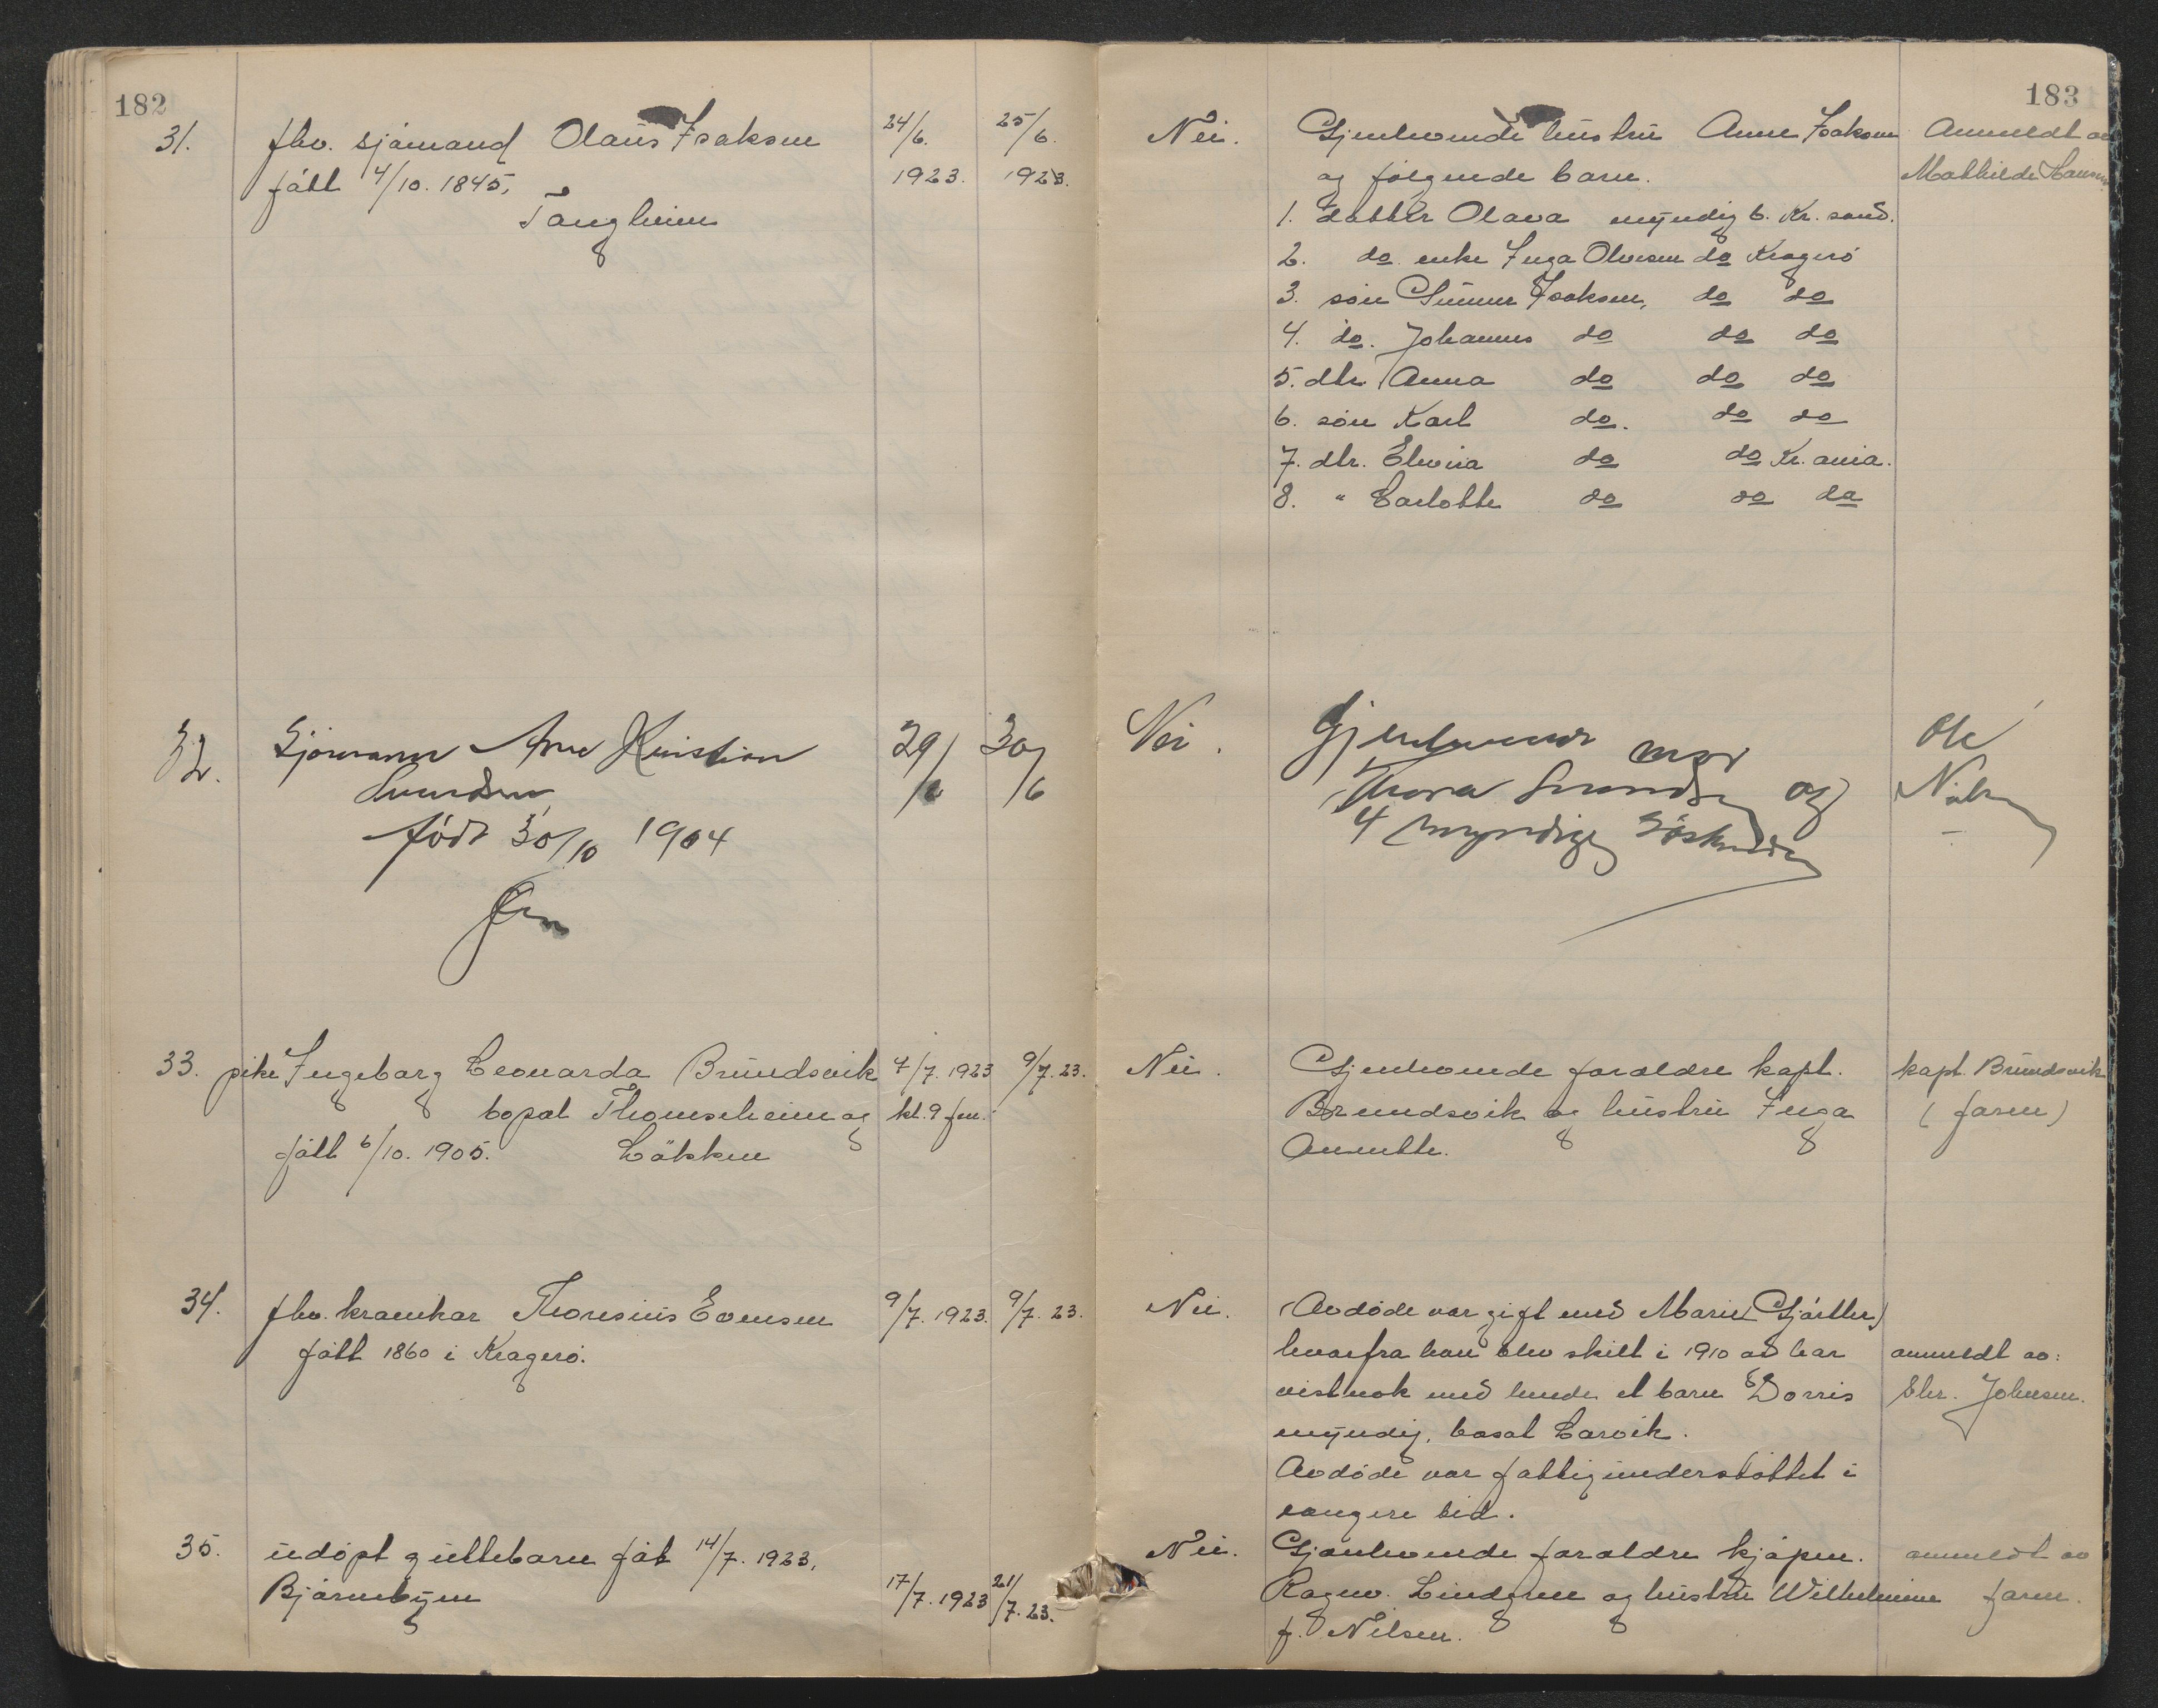 182
183
31. fhv. sjømand Olaus Isaksen 24/6. 1923. 25/6. 1923.
født 4/10. 1845,
Tangheim
Nei. Gjenlevende hustru Anne Isaksen Anmeldt av
og følgende barn. Mathilde Hansen
1. datter Olava myndig b. Kr. sand.
2. do enke Inga Olvesen do Kragerø
3. søn Gunnar Isaksen, do do
4. do. Johannes do do do
5. dtr. Anna do do do
6. søn Karl do. do do
7. dtr. Elvina do do Kr.ania.
8. " Carlotte do do do
32. Sjømann Arne Kristian 29/6 30/6
Svendsen
født 30/10 1904
Nei. Gjenlevende mor Ole
Thora Svendsen og
4 myndige Søskende
33. pike Ingeborg Leonarda Brundsvik 7/7. 1923 9/7. 23.
bopæl Thomseheim og kl. 9 fm.
født 6/10. 1905. Løkken
Nei. Gjenlevende foreldre kapt. kapt. Brundsvik
Brundsvik og hustru Inga (faren)
Annette.
34. fhv. kræmker Thoresius Evensen 9/7. 1923. 9/7. 23.
født 1860 i Kragerø.
Nei. (Avdøde var gift med Marie Gjørtler)
hvorfra han blev skilt i 1910 og har anmeldt av:
vistnok med hende et barn Dorris Chr. Johnsen.
myndig, bosat Larvik.
Avdøde var fattigunderstøttet i
længere tid.
35. udøpt guttebarn født 14/7. 1923,
Bjørnebyen 17/7. 1923 21/7. 23.
Nei. Gjenlevende foreldre kjøpm. anmeldt av
Ragnv. Lindgren og hustru Wilhelmine faren.
f. Nilsen.